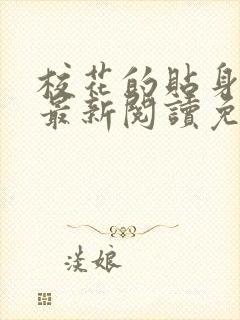 校花的貼身
最新閱讀免
淡娘